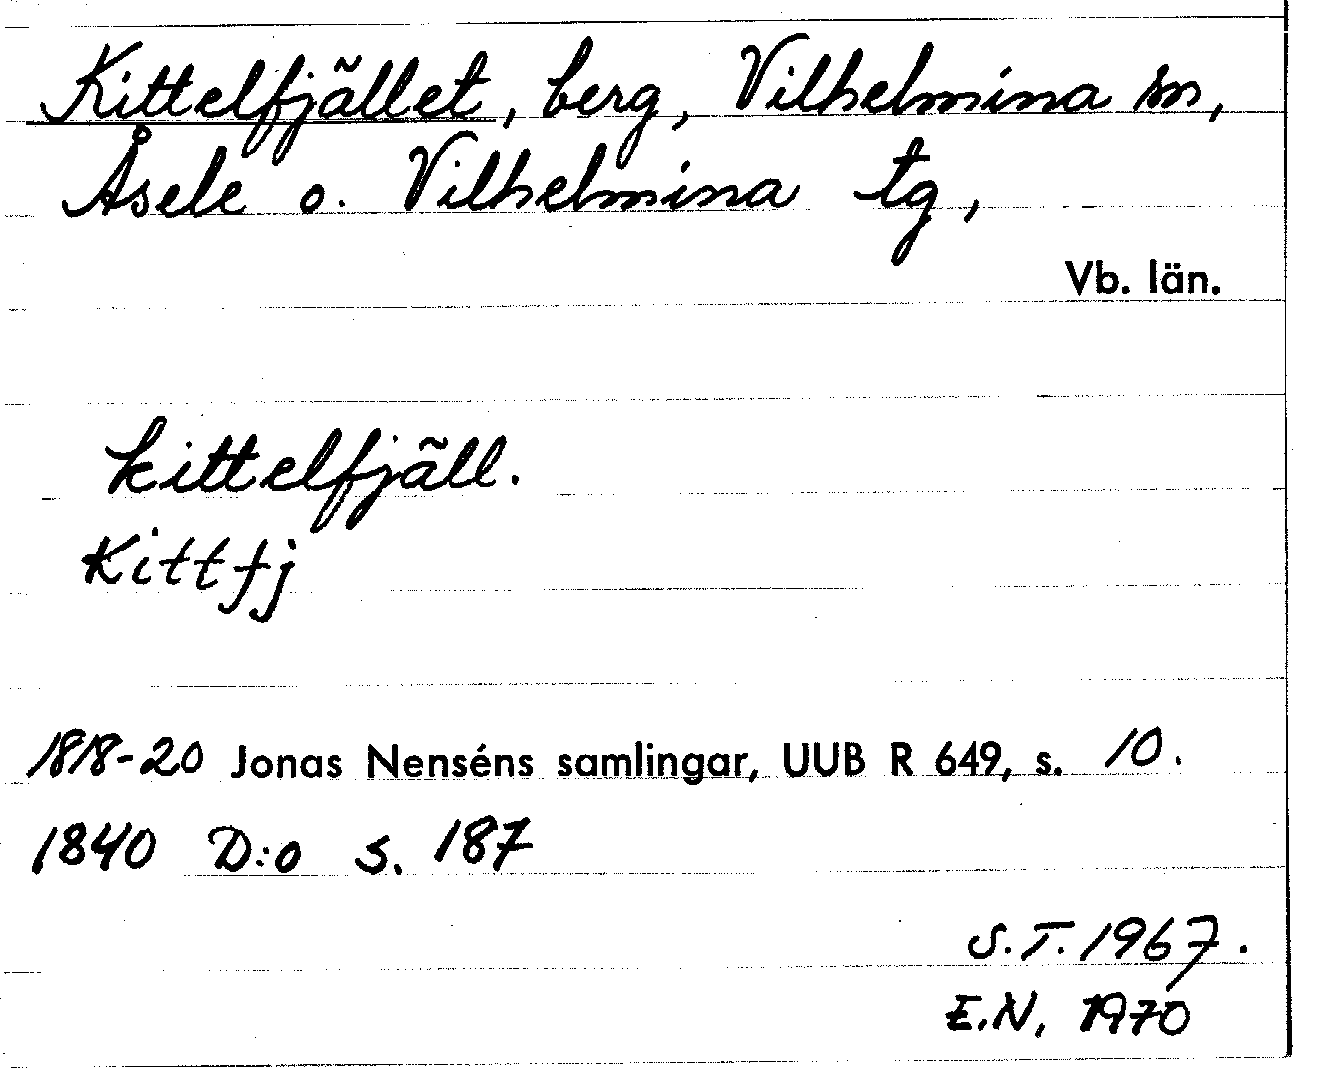 Kittelfjället, berg, Vilhelmina sn,
Åsele o. Vilhelmina tg,
Vb. län.
kittelfjäll.
Kittfj
1818-20 Jonas Nenséns samlingar, UUB R 649, s. 10.
1840 D:o s. 187
S.T. 1967.
E.N. 1970